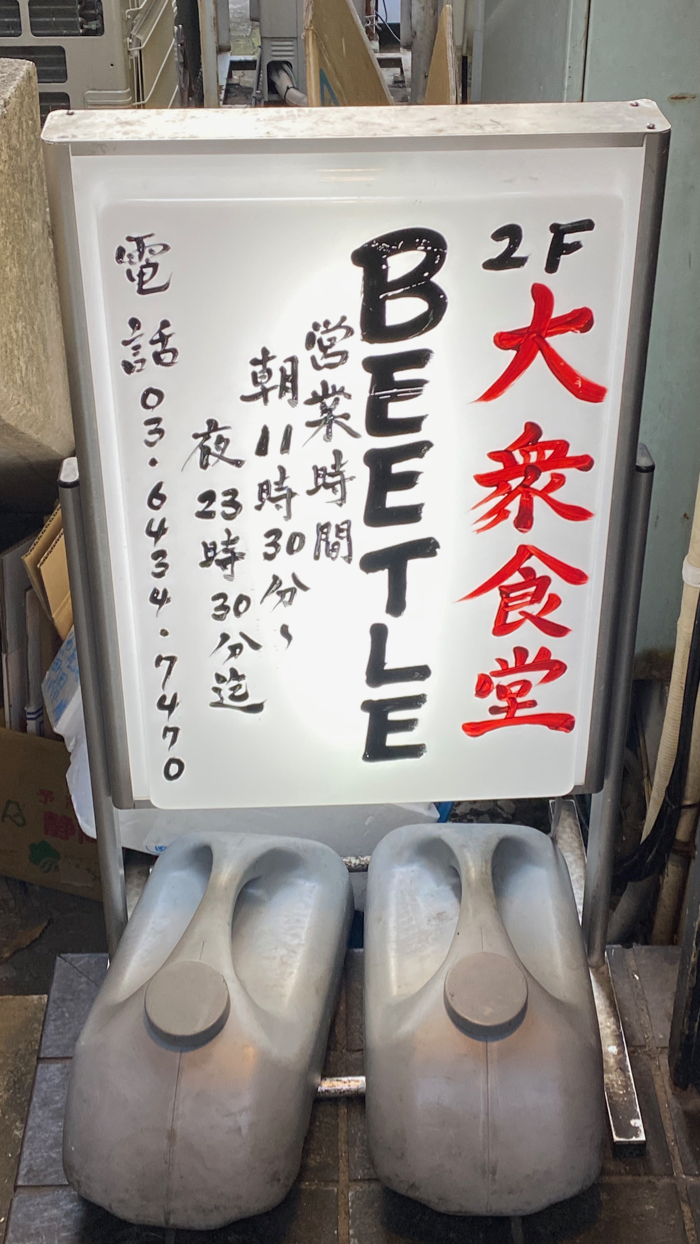 2F
大衆食堂
BEETLE
営業時間
朝11時30分〜
夜23時30分迄
電話03.6434.7470